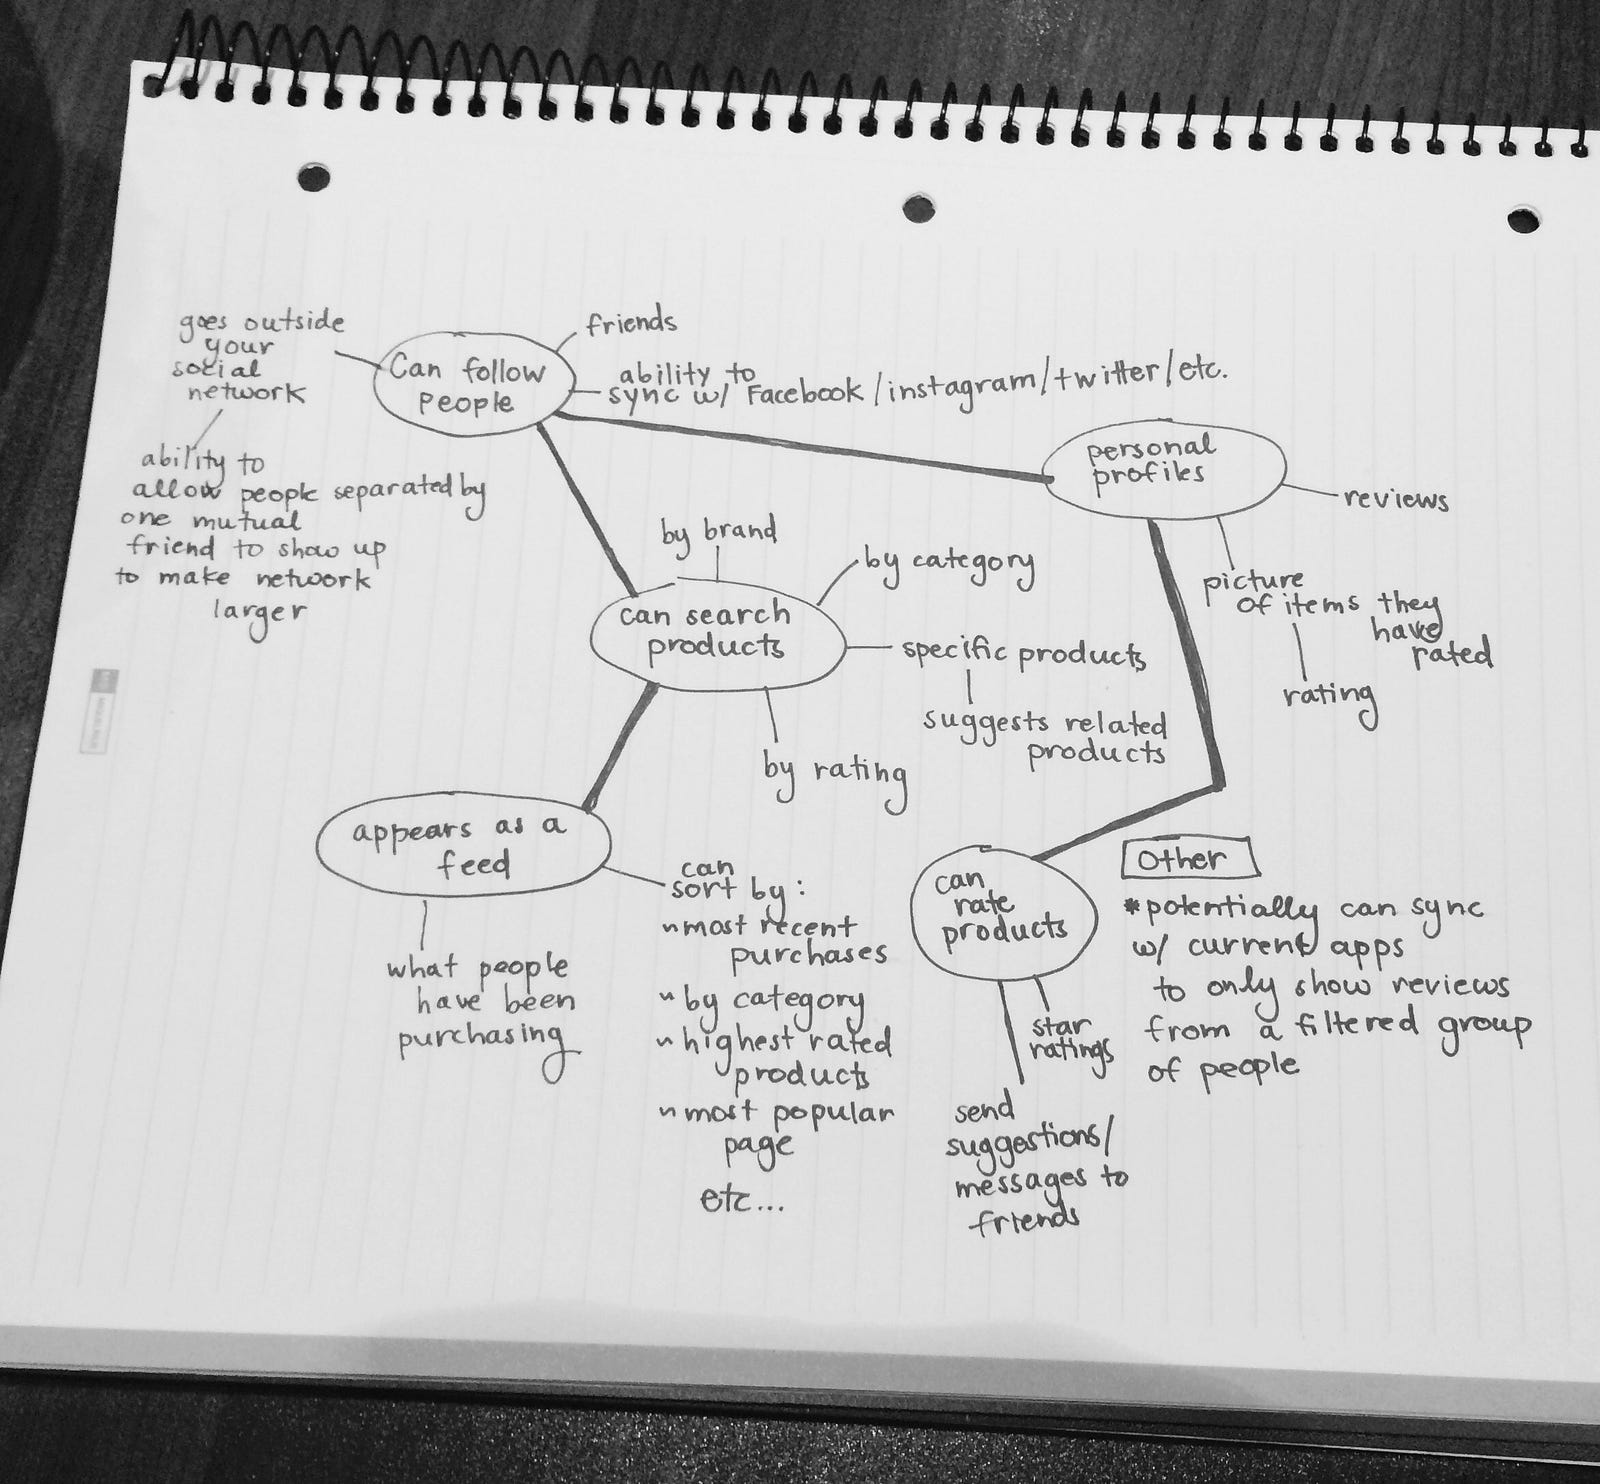 goes outside
your
social
network
ability to
allow people separated by
one mutual
friend to show up
to make network
larger
Can follow
people
friends
ability to
sync w/ Facebook/instagram/twitter/etc.
personal
profiles
reviews
picture
of items they
have
rated
rating
by brand
by category
can search
products
specific products
suggests related
products
by rating
appears as a
feed
what people
have been
purchasing
can
sort by:
~most recent
purchases
~by category
~highest rated
products
~most popular
page
etc...
can
rate
products
star
ratings
send
suggestions/
messages to
friends
Other
*potentially can sync
w/ current apps
to only show reviews
from a filtered group
of people